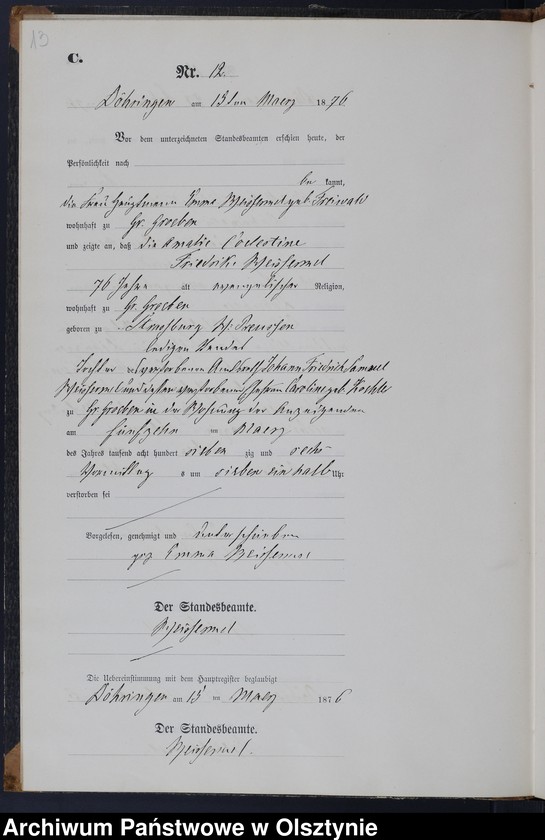 13
C.
Nr. 12.
Döhringen am 15ten Maerz 1876
Vor dem unterzeichneten Standesbeamten erschien heute, der
Persönlichkeit nach
be kannt,
die Frau Hauptmann Emma Weissermel geb. Freiwald
wohnhaft zu Gr. Groeben
und zeigte an, daß die Amalie Coelestine
Friedrike Weissermel
76 Jahre alt evangelischer Religion,
wohnhaft zu Gr. Groeben
geboren zu Strasburg W: Preussen
ledigen Standes
Tochter des verstorbenen Johann Friedrich Samuel
Weissermel und dessen verstorbenen Caroline geb. Koehler
zu Gr Groeben in der Wohnung der Anzeigenden
am fünfzehn ten Maerz
des Jahres tausend acht hundert sieben zig und sechs
Vormittag s um sieben ein halb Uhr
verstorben sei
Vorgelesen, genehmigt und unterschrieben
gez Emma Weissermel
Der Standesbeamte.
Weissermel
Die Uebereinstimmung mit dem Hauptregister beglaubigt
Döhringen am 15 ten Maerz 1876
Der Standesbeamte.
Weissermel.
Archiwum Państwowe w Olsztynie